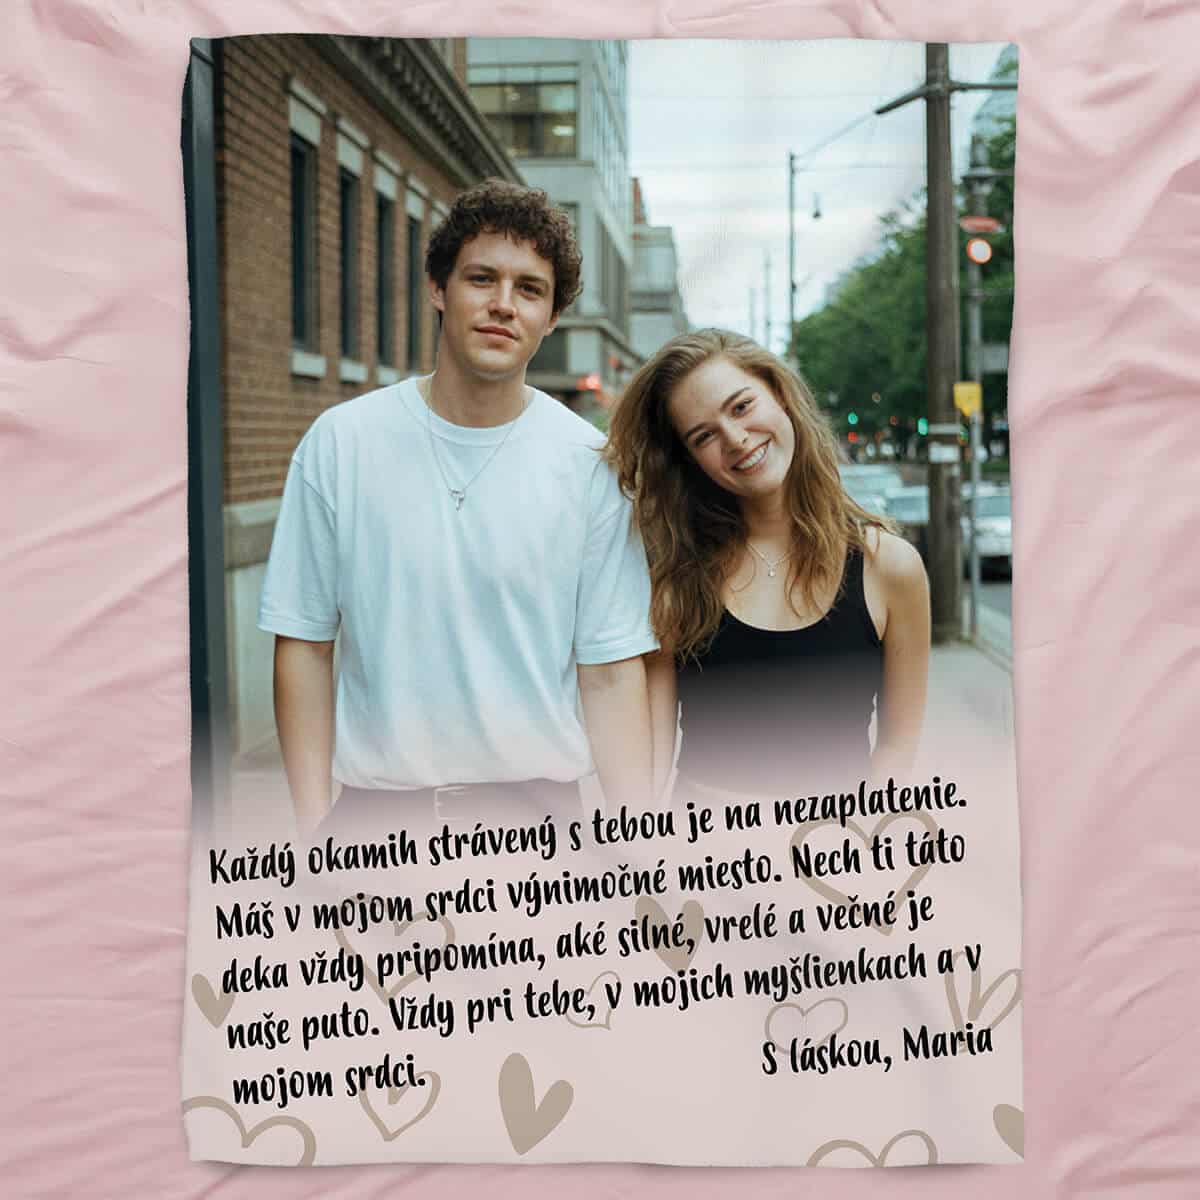 Každý okamih strávený s tebou je na nezaplatenie.
Máš v mojom srdci výnimočné miesto. Nech ti táto
deka vždy pripomína, aké silné, vrelé a večné je
naše puto. Vždy pri tebe, v mojich myšlienkach a v
mojom srdci.
S láskou, Maria